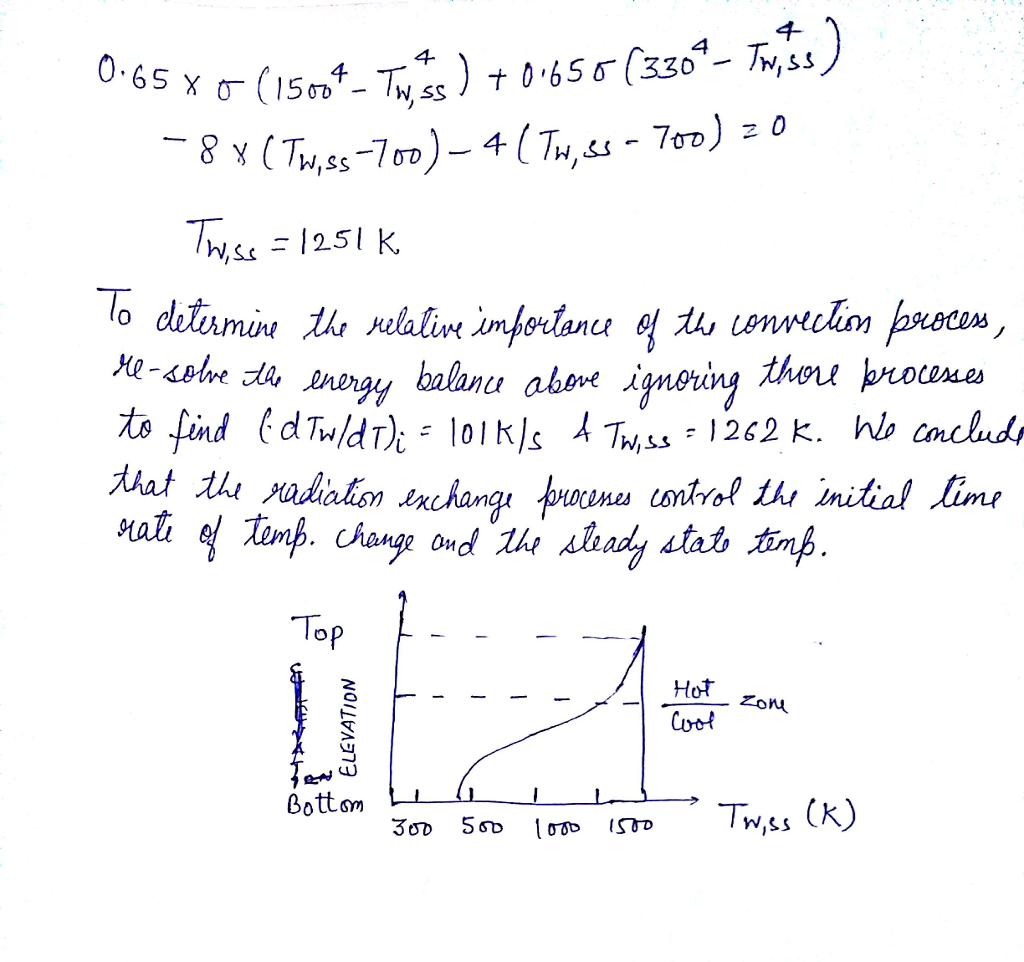 0.65 x σ (1500⁴ - Tw,ss⁴) + 0.65 σ (330⁴ - Tw,ss⁴)
- 8 x (Tw,ss - 700) - 4 (Tw,ss - 700) = 0
Tw,ss = 1251 K
To determine the relative importance of the convection process,
re-solve the energy balance above ignoring those processes
to find (dTw/dT)i = 101 K/s & Tw,ss = 1262 K. We conclude
that the radiation exchange processes control the initial time
rate of temp. change and the steady state temp.
Top
ELEVATION
Hot
Cool
Zone
Bottom
300 500 1000 1500
Tw,ss (K)